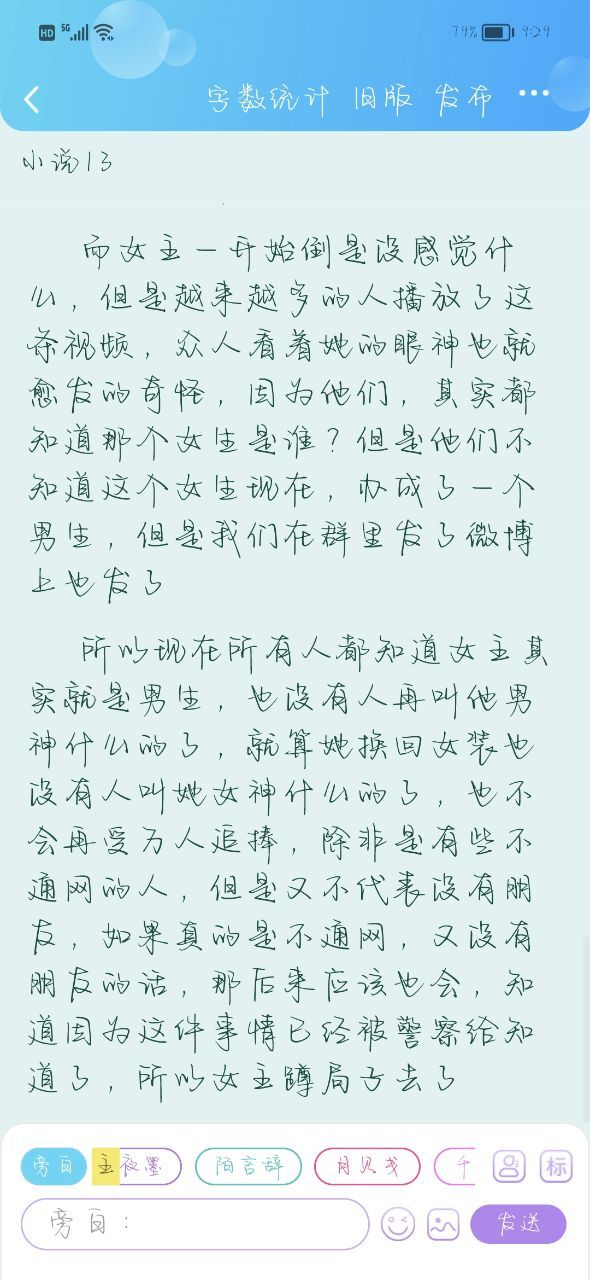 HD 5G 79% 9:29
字数统计 旧版 发布 ...
小说13
而女主一开始倒是没感觉什
么，但是越来越多的人播放了这
条视频，众人看着她的眼神也就
愈发的奇怪，因为他们，其实都
知道那个女生是谁？但是他们不
知道这个女生现在，办成了一个
男生，但是我们在群里发了微博
上也发了
所以现在所有人都知道女主其
实就是男生，也没有人再叫他男
神什么的了，就算她换回女装也
没有人叫她女神什么的了，也不
会再受万人追捧，除非是有些不
通网的人，但是又不代表没有朋
友，如果真的是不通网，又没有
朋友的话，那后来应该也会，知
道因为这件事情已经被警察给知
道了，所以女主蹲局子去了
旁白 主 夜墨 陌言辞 月贝戋 千 标
旁白：
发送